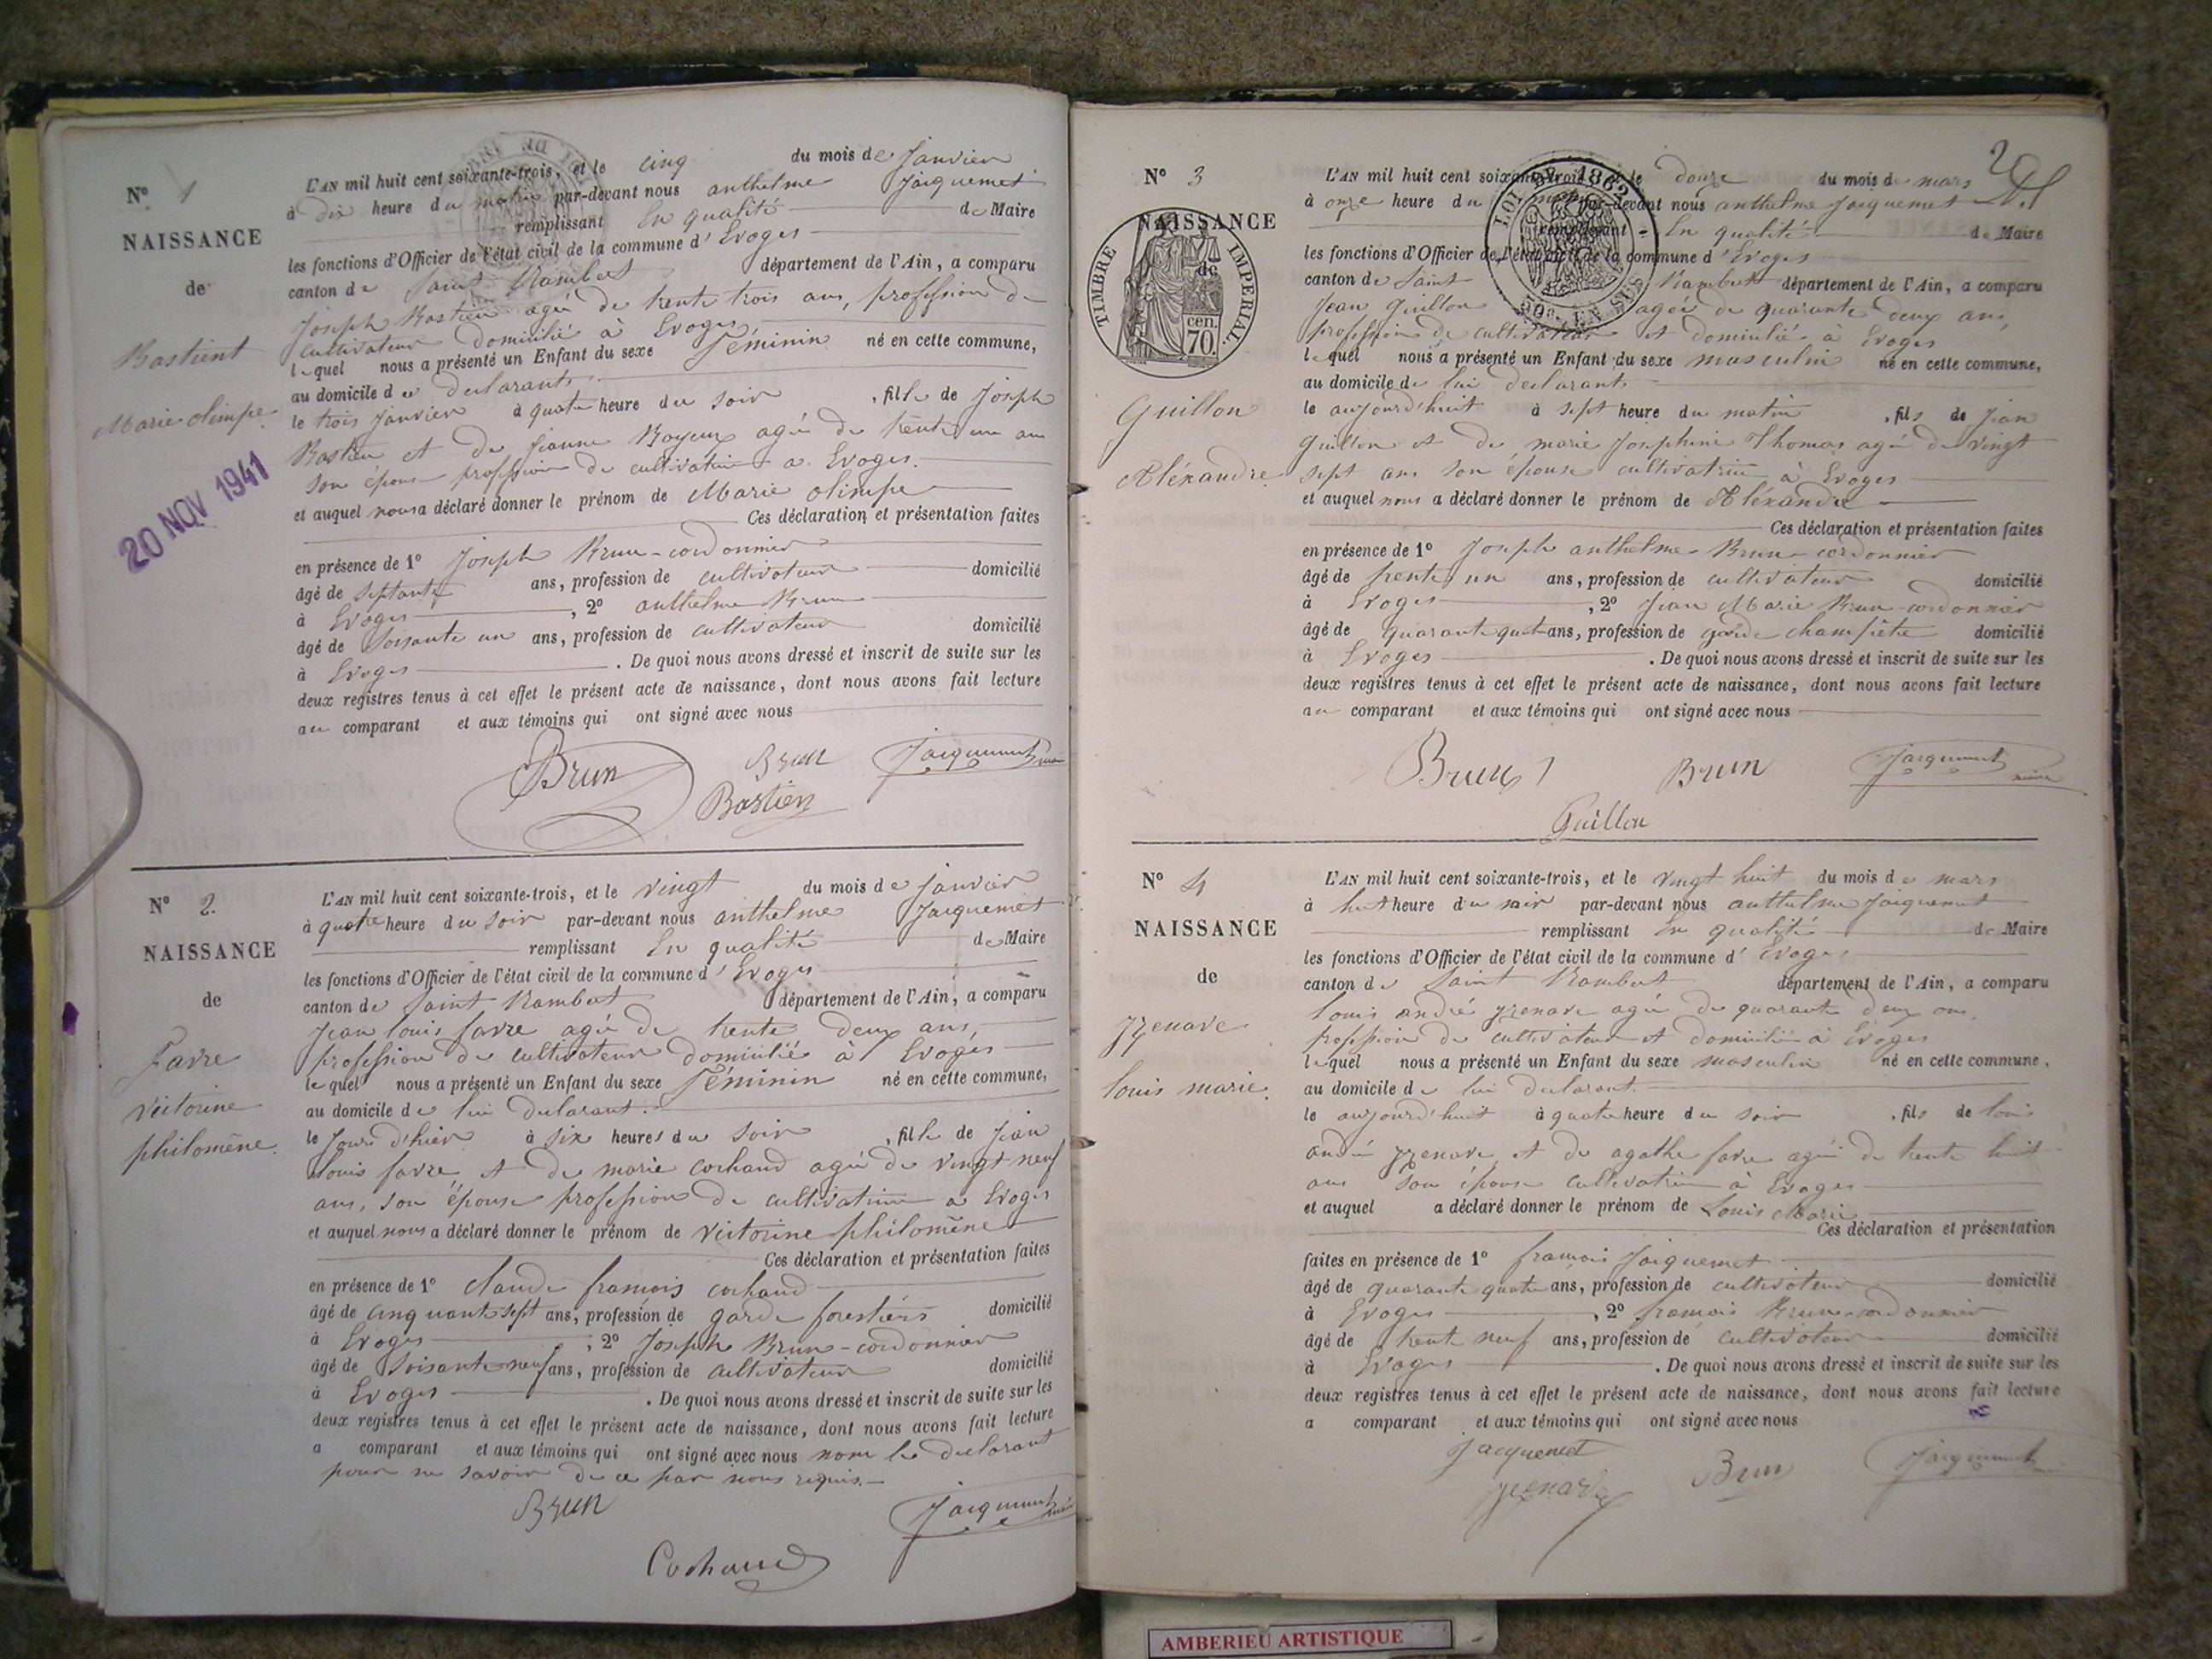 N° 1
NAISSANCE
de
Bastient
Marie olimpe.
20 NOV 1941
L'AN mil huit cent soixante-trois, et le cinq du mois de Janvier
à dix heure du matin par-devant nous anthelme Jacquemet
remplissant En qualité de Maire
les fonctions d'Officier de l'état civil de la commune d'Evoges
canton de Saint Rambert département de l'Ain, a comparu
Joseph Bastien agé de trente trois ans, profession de
cultivateur domicilié à Evoges
lequel nous a présenté un Enfant du sexe Féminin né en cette commune,
au domicile de declarants
le trois Janvier à quatre heure du soir, fille de Joseph
Bastien et de jeanne Boyeux agé de trente un an
son épouse profession de cultivatrice a Evoges.
et auquel nous a déclaré donner le prénom de Marie olimpe
Ces déclaration et présentation faites
en présence de 1° Joseph Brun-cordonnier
âgé de septante ans, profession de cultivateur domicilié
à Evoges, 2° anthelme Brun
âgé de soisante un ans, profession de cultivateur domicilié
à Evoges. De quoi nous avons dressé et inscrit de suite sur les
deux registres tenus à cet effet le présent acte de naissance, dont nous avons fait lecture
au comparant et aux témoins qui ont signé avec nous
Brun Brun Jacquemet maire
Bastien
N° 2.
NAISSANCE
de
Favre
victorine
philomène.
L'AN mil huit cent soixante-trois, et le vingt du mois de Janvier
à quatre heure du soir par-devant nous anthelme Jacquemet
remplissant En qualité de Maire
les fonctions d'Officier de l'état civil de la commune d'Evoges
canton de Saint Rambert département de l'Ain, a comparu
Jean louis favre agé de trente deux ans,
profession de cultivateur domicilié à Evoges
lequel nous a présenté un Enfant du sexe Féminin né en cette commune,
au domicile de lui declarant.
le jours d'hier à six heures du soir, fille de Jean
louis favre et de marie cochaud agée de vingt neuf
ans, son épouse profession de cultivatrice a Evoges
et auquel nous a déclaré donner le prénom de victorine philomène
Ces déclaration et présentation faites
en présence de 1° claude framois cochaud
âgé de cinquante sept ans, profession de garde forestiers domicilié
à Evoges, 2° Joseph Brun-cordonnier
âgé de soisante neuf ans, profession de cultivateur domicilié
à Evoges. De quoi nous avons dressé et inscrit de suite sur les
deux registres tenus à cet effet le présent acte de naissance, dont nous avons fait lecture
a comparant et aux témoins qui ont signé avec nous nom le declarant
pour ne savoir de ce par nous requis.
Brun Jacquemet maire
Cochaud
2
N° 3
NAISSANCE
de
TIMBRE IMPERIAL
70 cen.
Guillon
Aléxandre
LOI DE 1862
50c EN SUS
L'AN mil huit cent soixante-trois, et le douze du mois de mars
à onze heure du matin par-devant nous anthelme Jacquemet
remplissant En qualité de Maire
les fonctions d'Officier de l'état civil de la commune d'Evoges
canton de Saint Rambert département de l'Ain, a comparu
Jean Guillon agée de quarante deux ans,
profession de cultivateur et domicilié à Evoges
lequel nous a présenté un Enfant du sexe masculin né en cette commune,
au domicile de lui declarants
le aujourd'huit à sept heure du matin, fils de Jean
Guillon et de marie Josephine Thomas agé de vingt
sept ans son épouse cultivatrice à Evoges
et auquel nous a déclaré donner le prénom de Aléxandre
Ces déclaration et présentation faites
en présence de 1° Joseph anthelme Brun-cordonnier
âgé de trente un ans, profession de cultivateur domicilié
à Evoges, 2° Jean Marie Brun-cordonnier
âgé de quarante quatre ans, profession de garde champêtre domicilié
à Evoges. De quoi nous avons dressé et inscrit de suite sur les
deux registres tenus à cet effet le présent acte de naissance, dont nous avons fait lecture
au comparant et aux témoins qui ont signé avec nous
Brun Brun Jacquemet maire
Guillon
N° 4
NAISSANCE
de
yzenave
louis marie.
L'AN mil huit cent soixante-trois, et le vingt huit du mois de mars
à huit heure du soir par-devant nous anthelme Jacquemet
remplissant En qualité de Maire
les fonctions d'Officier de l'état civil de la commune d'Evoges
canton de Saint Rambert département de l'Ain, a comparu
louis andré yzenave agée de quarante deux ans,
profession de cultivateur et domicilié à Evoges
lequel nous a présenté un Enfant du sexe masculin né en cette commune,
au domicile de lui declarant
le aujourd'huit à quatre heure du soir, fils de louis
andré yzenave et de agathe favre agée de trente huit
ans son épouse cultivatrice à Evoges
et auquel a déclaré donner le prénom de Louis Marie
Ces déclaration et présentation
faites en présence de 1° framois Jacquemet
âgé de quarante quatre ans, profession de cultivateur domicilié
à Evoges, 2° framois Brun-cordonnier
âgé de trente neuf ans, profession de cultivateur domicilié
à Evoges. De quoi nous avons dressé et inscrit de suite sur les
deux registres tenus à cet effet le présent acte de naissance, dont nous avons fait lecture
a comparant et aux témoins qui ont signé avec nous
Jacquemet
yzenave Brun Jacquemet
AMBERIEU ARTISTIQUE